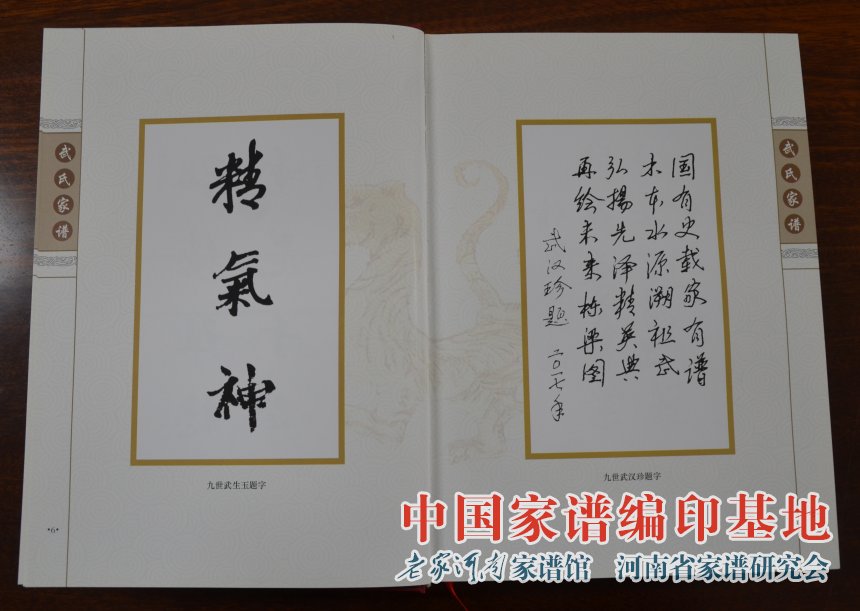 武氏家谱
精氣神
九世武生玉题字
*6*
国有史载家有谱
木本水源溯祖武
弘揚先泽精英典
再绘未来栋梁图
武汉珍题 二〇一七年
九世武汉珍题字
武氏家谱
中国家谱编印基地
老家河南家谱馆 河南省家谱研究会